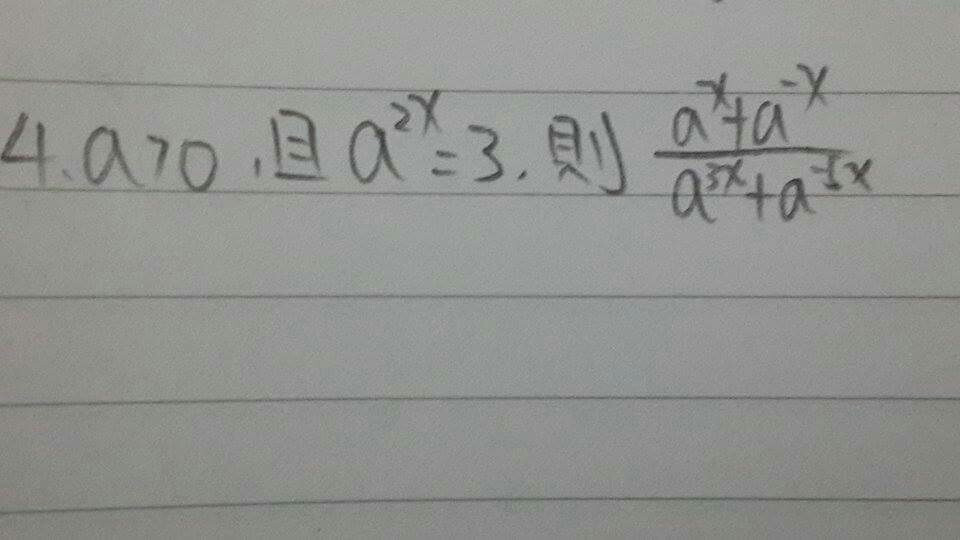 4. a>0,且 a^{2x}=3.則 \frac{a^{x}+a^{-x}}{a^{3x}+a^{-3x}}